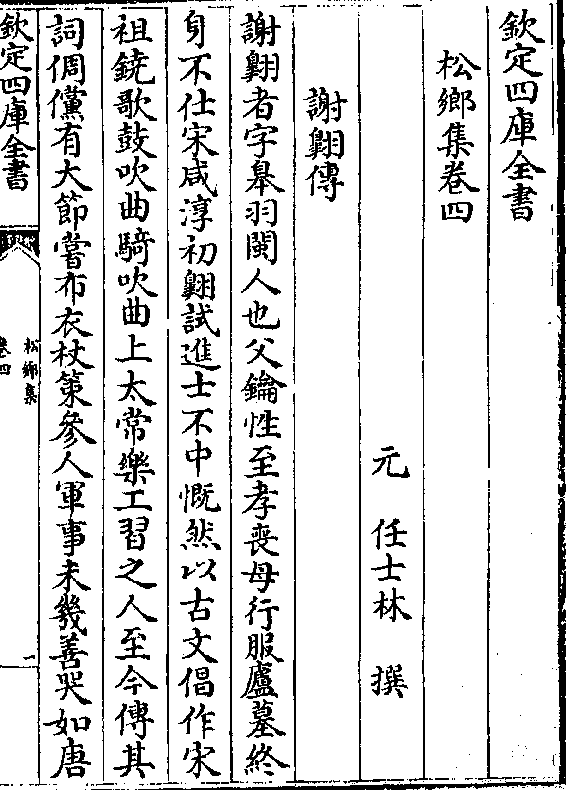 欽定四庫全書
松鄉集卷四
元 任士林 撰
謝翺傳
謝翺者字臯羽閩人也父鑰性至孝喪母行服廬墓終
身不仕宋咸淳初翺試進士不中慨然以古文倡作宋
祖鐃歌鼓吹曲騎吹曲上太常樂工習之人至今傳其
詞倜儻有大節嘗布衣杖策參人軍事未幾善哭如唐
欽定四庫全書
松鄉集
卷四
一